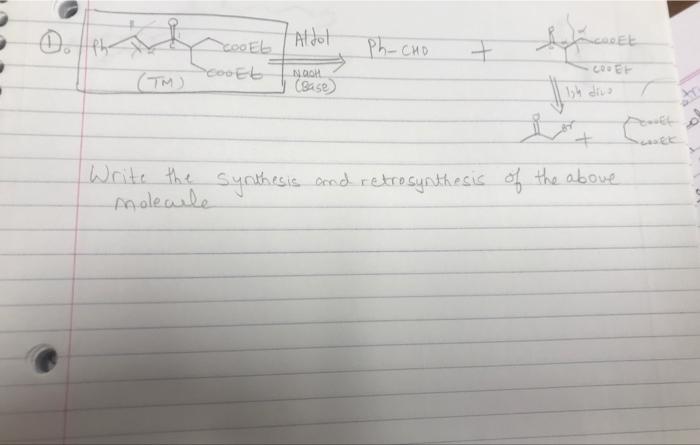 ①. Ph COOEt COOEt (TM) Aldol NaOH (Base) Ph-CHO + COOEt COOEt
1,4 disco
Br + COOEt COOEt
Write the synthesis and retrosynthesis of the above
molecule